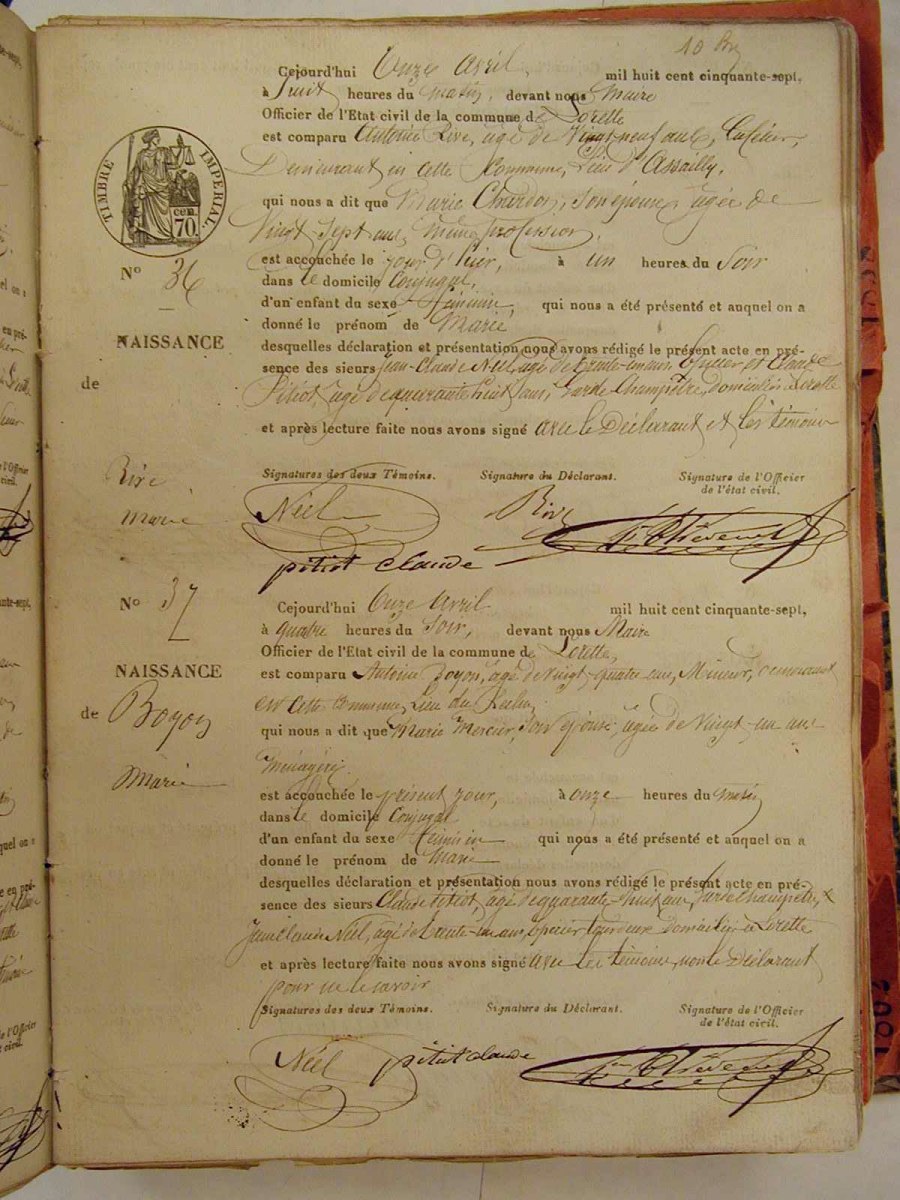 Cejourd'hui Onze Avril mil huit cent cinquante-sept,
à huit heures du matin, devant nous Maire
Officier de l'Etat civil de la commune de Lorette
est comparu Antoine Rive, agé de Vingt neuf ans, Cafetier,
Demeurant en cette Commune, Lieu d'Assailly,
qui nous a dit que Marie Chardon, son épouse, agée de
Vingt Sept ans, même profession,
est accouchée le jour d'hier, à un heures du Soir
dans le domicile Conjugal,
d'un enfant du sexe Féminin, qui nous a été présenté et auquel on a
donné le prénom de Marie
desquelles déclaration et présentation nous avons rédigé le présent acte en pré-
sence des sieurs Jean Claude Néel, agé de trente-un ans, Epicier et Claude
Pitiot, agé de quarante huit ans, Garde Champêtre, domiciliés à Lorette
et après lecture faite nous avons signé avec le Déclarant et les témoins
Signatures des deux Témoins. Signature du Déclarant. Signature de l'Officier
de l'état civil.
Néel Rive
pitiot Claude
TIMBRE IMPERIAL.
70 cen.
No 36
NAISSANCE
de
Rive
Marie
No 37
NAISSANCE
de Boyon
Marie
Cejourd'hui Onze Avril mil huit cent cinquante-sept,
à quatre heures du Soir, devant nous Maire
Officier de l'Etat civil de la commune de Lorette,
est comparu Antoine Boyon, agé de Vingt-quatre ans, Mineur, demeurant
en cette Commune, Lieu du
qui nous a dit que Marie Mercier, Son épouse agée de Vingt-un ans
Ménagère
est accouchée le présent jour, à onze heures du matin
dans le domicile Conjugal
d'un enfant du sexe Féminin qui nous a été présenté et auquel on a
donné le prénom de Marie
desquelles déclaration et présentation nous avons rédigé le présent acte en pré-
sence des sieurs Claude Pitiot, agé de quarante-huit ans, Garde champêtre, &
Jean Claude Néel, agé de trente-un ans, Epicier tous deux domiciliés à Lorette
et après lecture faite nous avons signé avec les témoins, non le Déclarant
pour ne le savoir
Signatures des deux Témoins. Signature du Déclarant. Signature de l'Officier
de l'état civil.
Néel pitiot claude